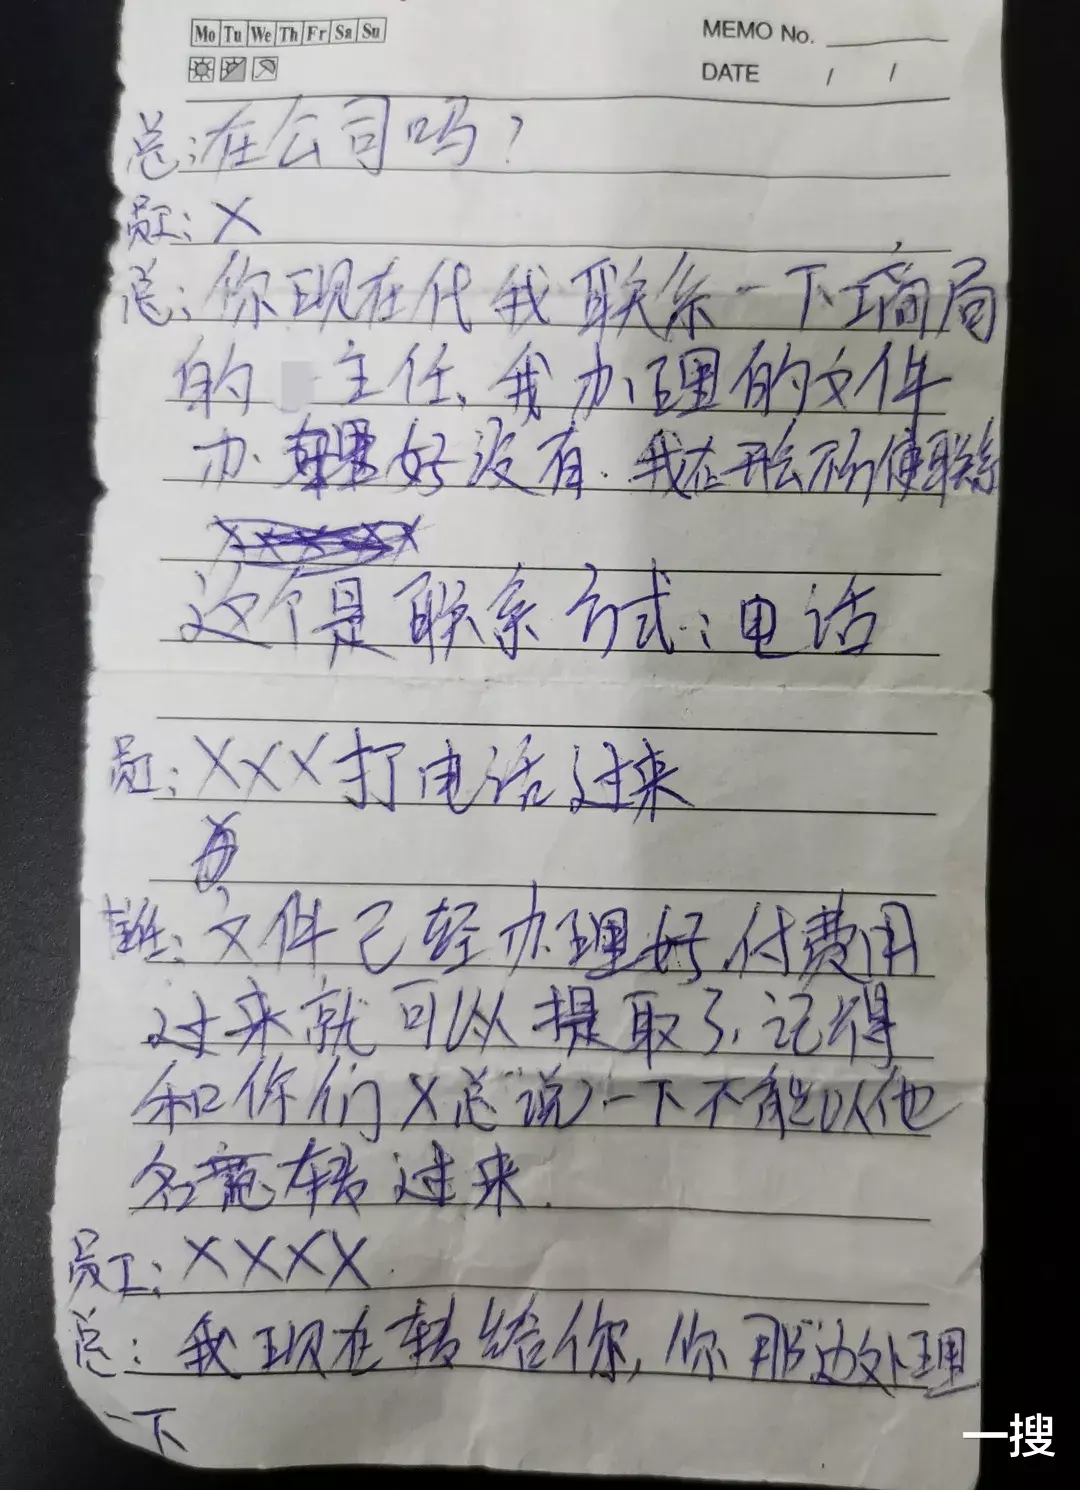 Mo Tu We Th Fr Sa Su
MEMO No.
DATE / /
总:在公司吗?
员工:X
总:你现在代我联系一下工商局
的 主任、我办理的文件
办 好没有.我在开会不方便联系
这个是联系方式:电话
员工:XXX打电话过来
主任:文件已经办理好.付费用
过来就可以提取了、记得
和你们X总说一下不能以他
名 转过来.
员工:XXXX
总:我现在转给你,你那边处理
一下
一搜